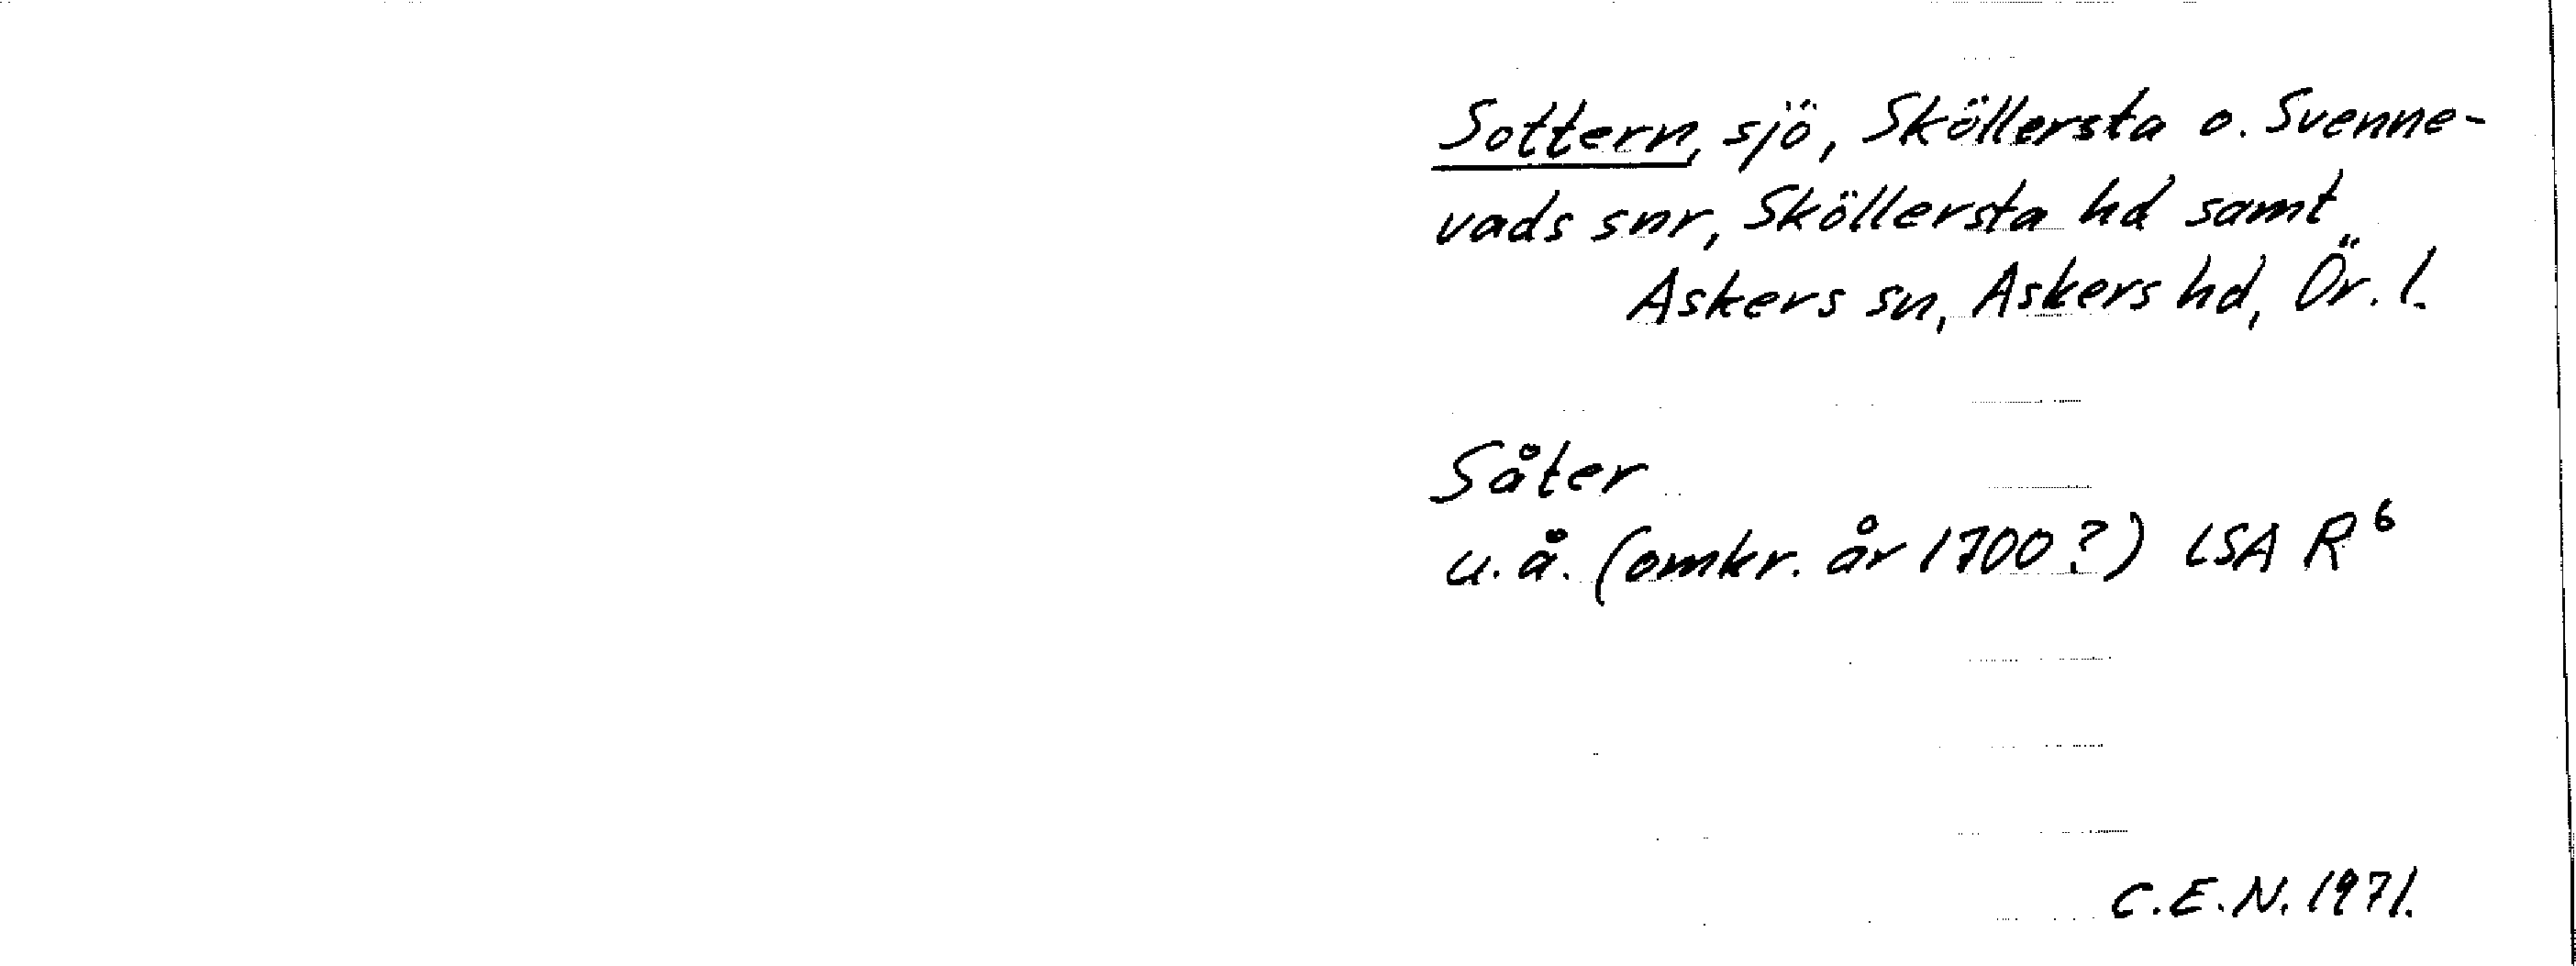 Sottern, sjö, Sköllersta o. Svenne-
vads snr, Sköllersta hd samt
Askers sn, Askers hd, Ör. l.
Såter
u.å. (omkr. år 1700?) LSA R⁶
C.E.N. 1971.